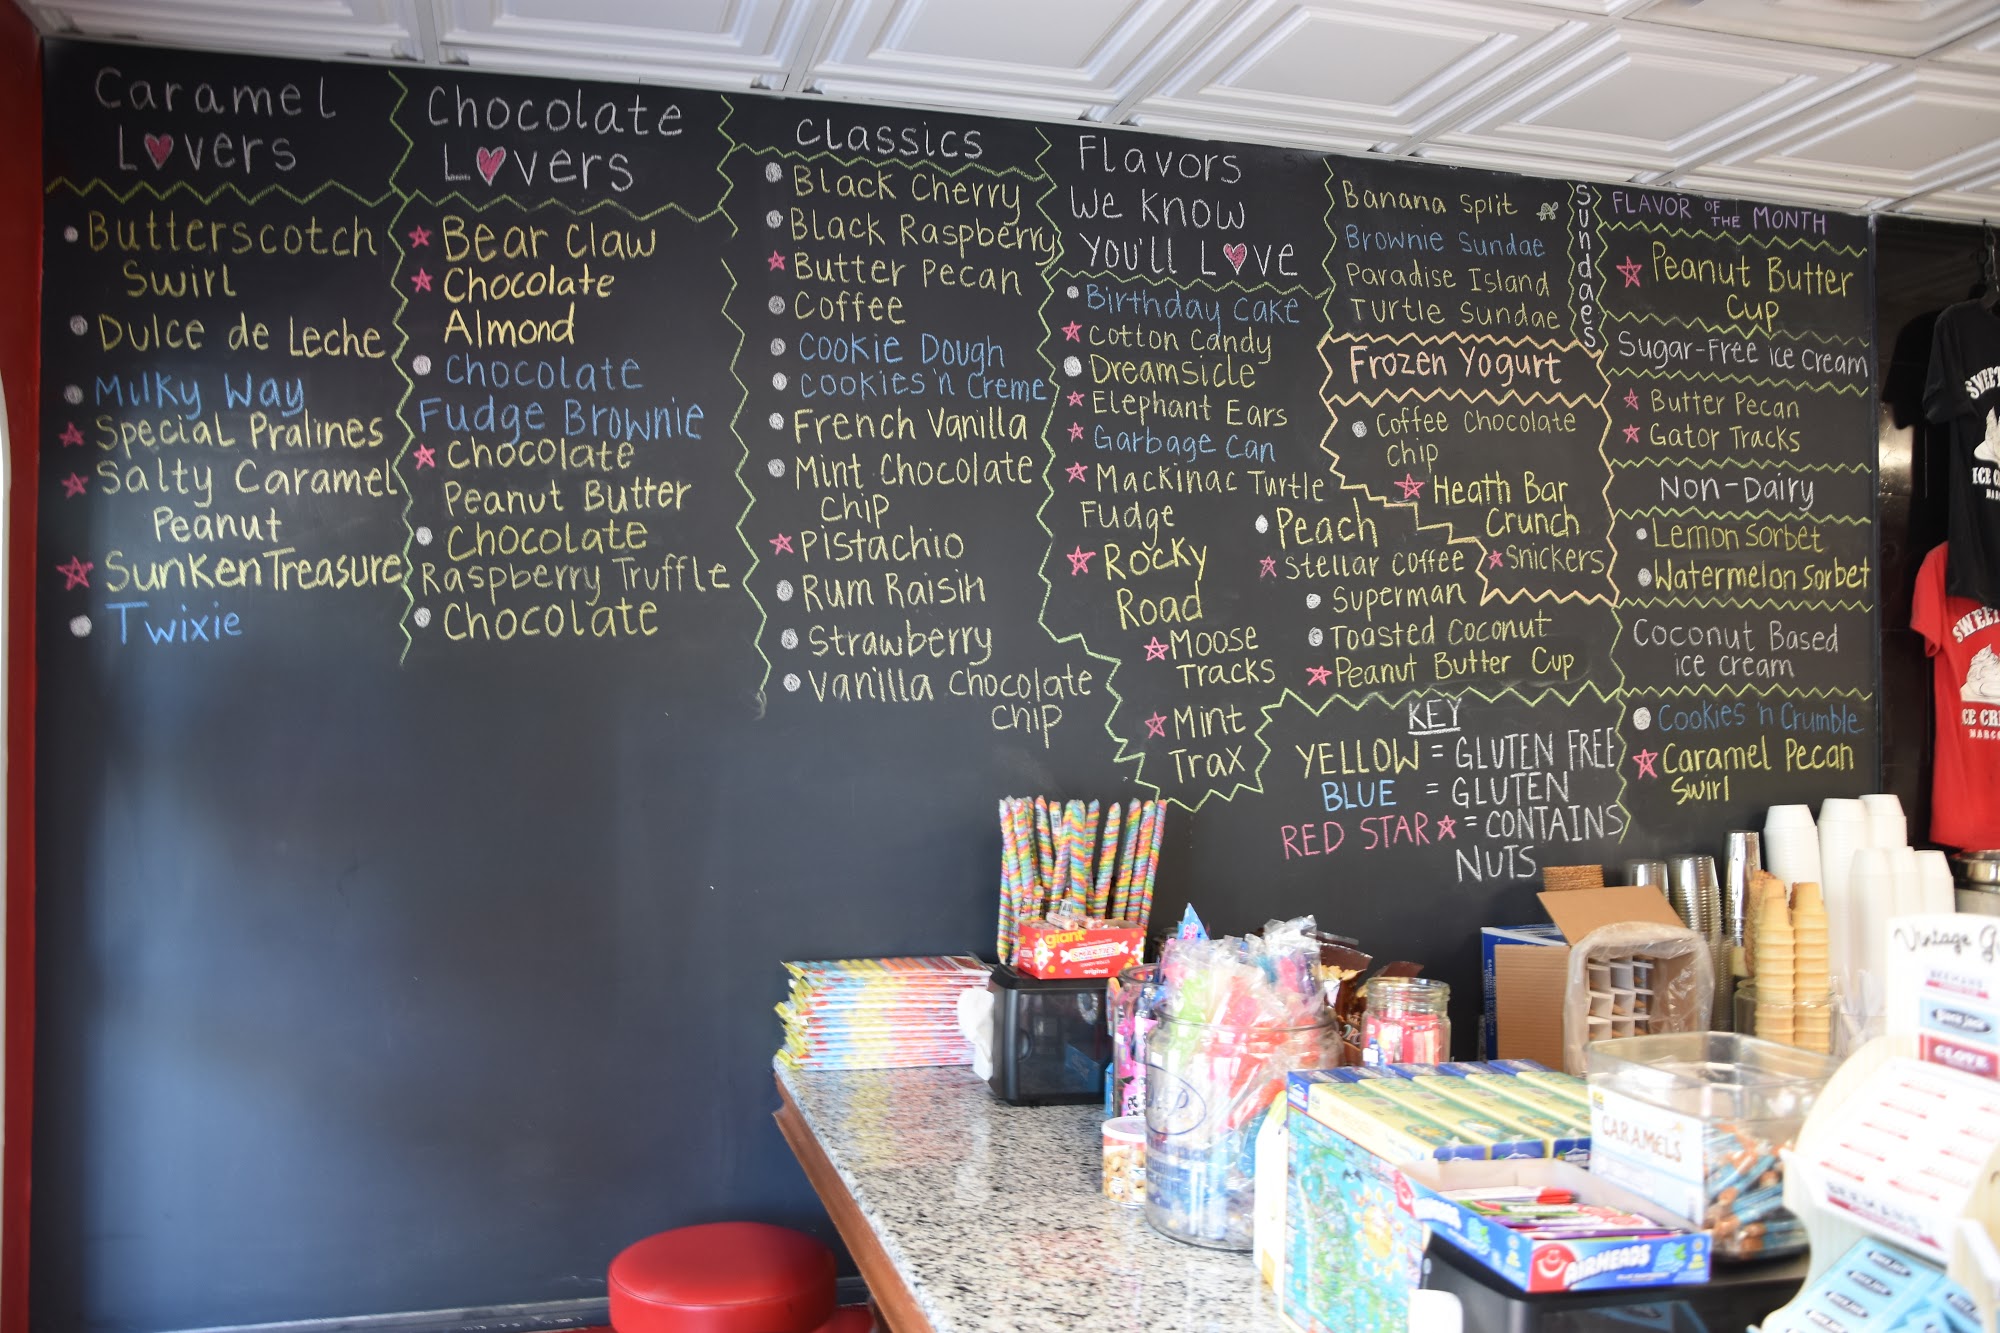 Caramel
Lovers
Butterscotch
Swirl
Dulce de Leche
Milky Way
Special Pralines
Salty Caramel
Peanut
Sunken Treasure
Twixie
Chocolate
Lovers
Bear Claw
Chocolate
Almond
Chocolate
Fudge Brownie
Chocolate
Peanut Butter
Chocolate
Raspberry Truffle
Chocolate
Classics
Black Cherry
Black Raspberry
Butter Pecan
Coffee
Cookie Dough
Cookies 'n Creme
French Vanilla
Mint Chocolate
Chip
Pistachio
Rum Raisin
Strawberry
Vanilla Chocolate
Chip
Flavors
We Know
You'll Love
Birthday Cake
Cotton Candy
Dreamsicle
Elephant Ears
Garbage Can
Mackinac Turtle
Fudge
Rocky
Road
Moose
Tracks
Mint
Trax
Peach
Stellar Coffee
Superman
Toasted Coconut
Peanut Butter Cup
Sundaes
Banana Split
Brownie Sundae
Paradise Island
Turtle Sundae
Frozen Yogurt
Coffee Chocolate
Chip
Heath Bar
Crunch
Snickers
KEY
YELLOW = GLUTEN FREE
BLUE = GLUTEN
RED STAR = CONTAINS
NUTS
FLAVOR OF THE MONTH
Peanut Butter
Cup
Sugar-Free ice cream
Butter Pecan
Gator Tracks
Non-Dairy
Lemon Sorbet
Watermelon Sorbet
Coconut Based
ice cream
Cookies 'n Crumble
Caramel Pecan
Swirl
SWEET
ICE
SWEET
ICE CR
giant
SMARTIES
original
CARAMELS
AIRHEADS
Vintage